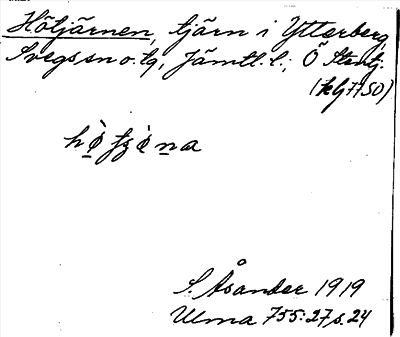 Hötjärnen, tjärn i Ytterberg,
Svegs sn o. tg, Jämtl. l.; Ö Stentj.
(kg 7750)
S. Åsander 1919
Ulma 755:27 s. 24